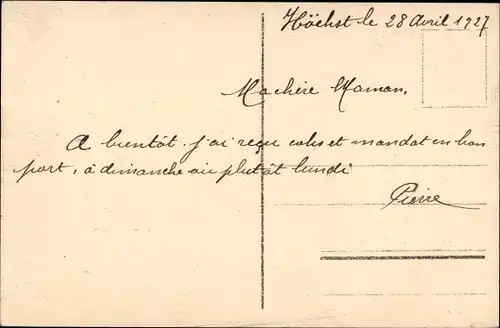 Höchst le 28 Avril 1927
Ma chère Maman,
A bientôt. j'ai reçu colis et mandat en bon
port, à dimanche ou plutôt lundi
Pierre